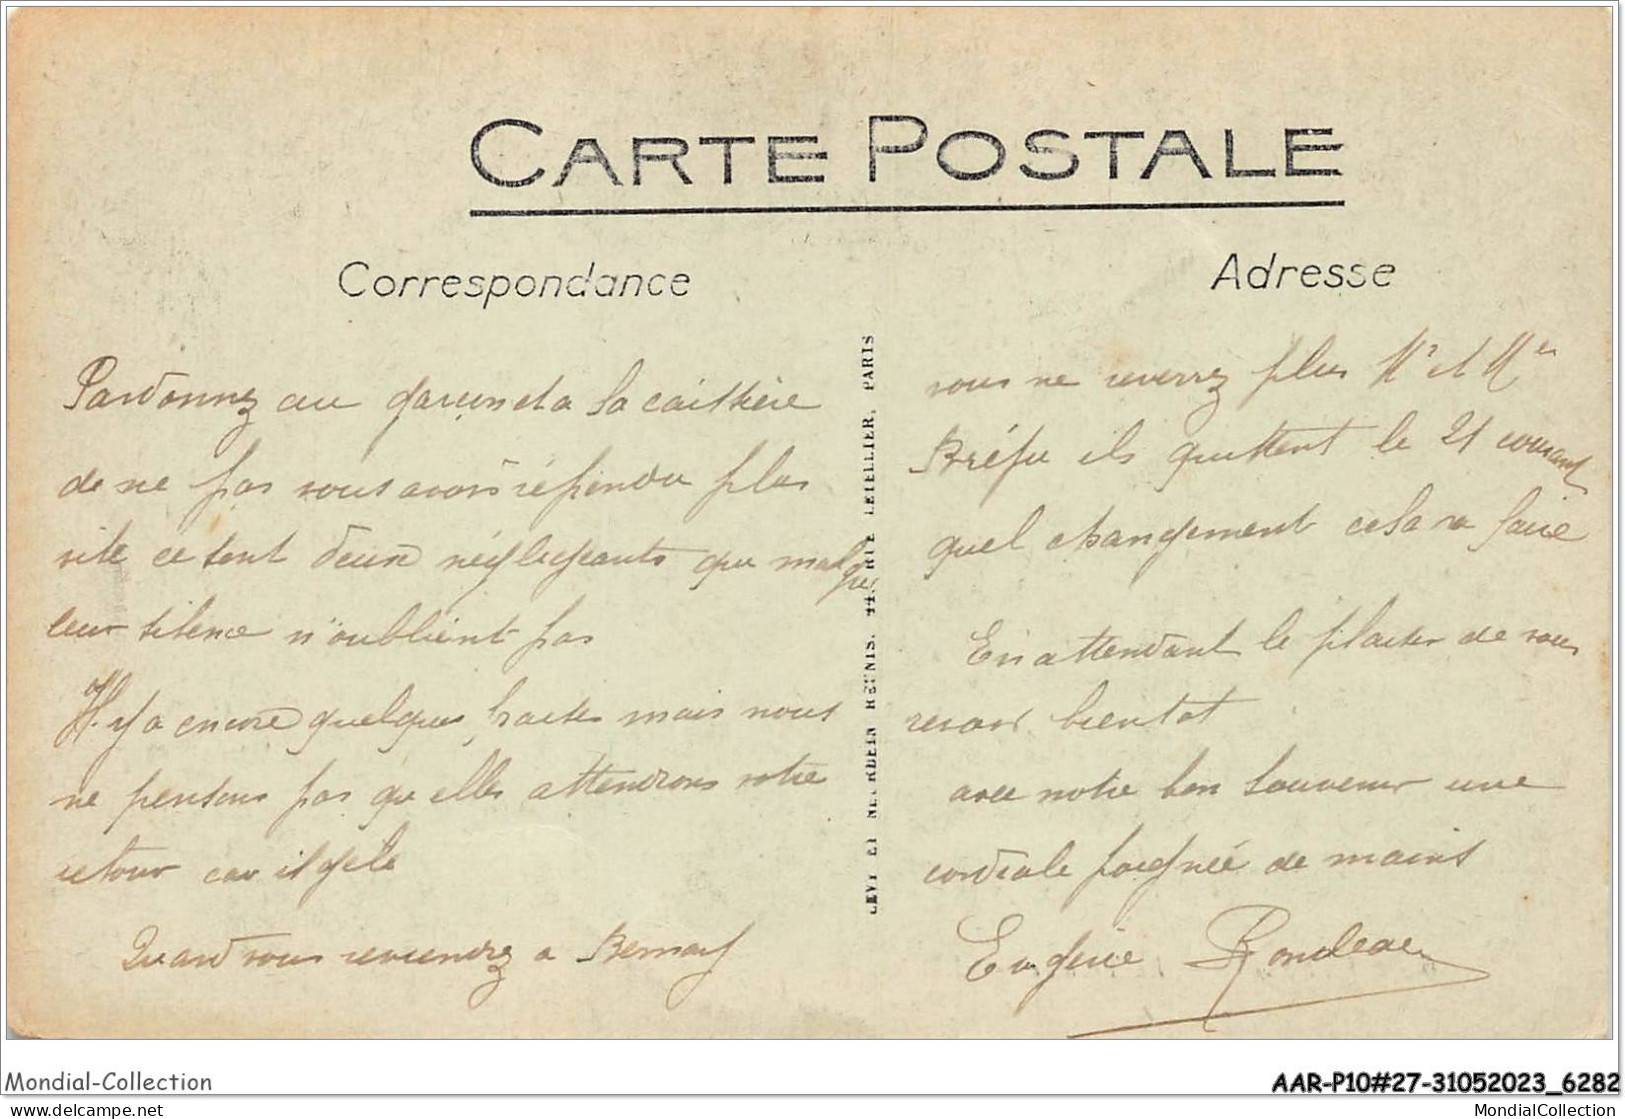 CARTE POSTALE
Correspondance
Pardonnez au garçon et a la caissière
de ne pas vous avoir répondu plus
vite ce sont deux négligeants que malgre
leur silence n'oublient pas
Il y a encore quelques mais nous
ne pensons pas qu'elles attendrons votre
retour car il gèle
Quand vous reviendrez a Bernay
LEVY ET NEURDEIN REUNIS, 44, RUE LETELLIER, PARIS
Adresse
vous ne reverrez plus Mr et Mes
ils quittent le 21 courant
quel changement cela va faire
En attendant le plaisir de vous
revoir bientot
avec notre bon souvenir une
cordiale poignée de mains
Eugénie Rondeau
Mondial-Collection
AAR-P10#27-31052023_6282
www.delcampe.net
MondialCollection